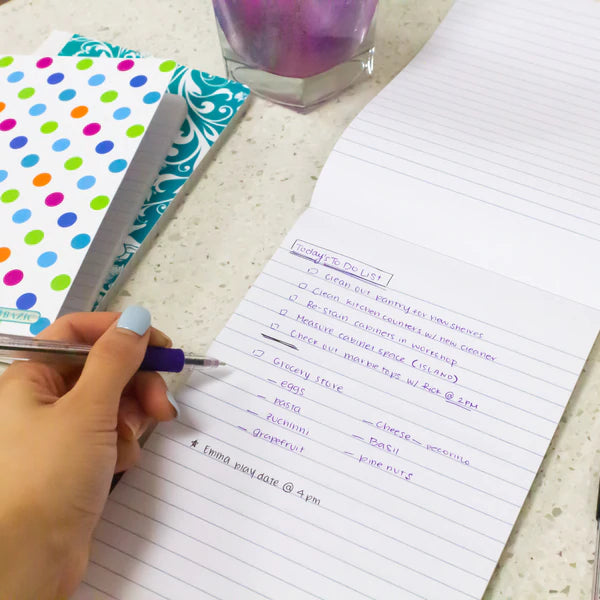 Today's To Do List
☐ Clean out pantry for new shelves
☐ Clean kitchen counters w/ new cleaner
☐ Re-Stain cabiners in workshop
☐ Measure cabinet space (ISLAND)
☐ Check out marble tops w/ Rick @ 2PM
☐ Grocery store
– eggs
– pasta
– zuchinni
– grapefruit
– Cheese – pecorino
– Basil
– pine nuts
★ Emma play date @ 4pm
BAZIC